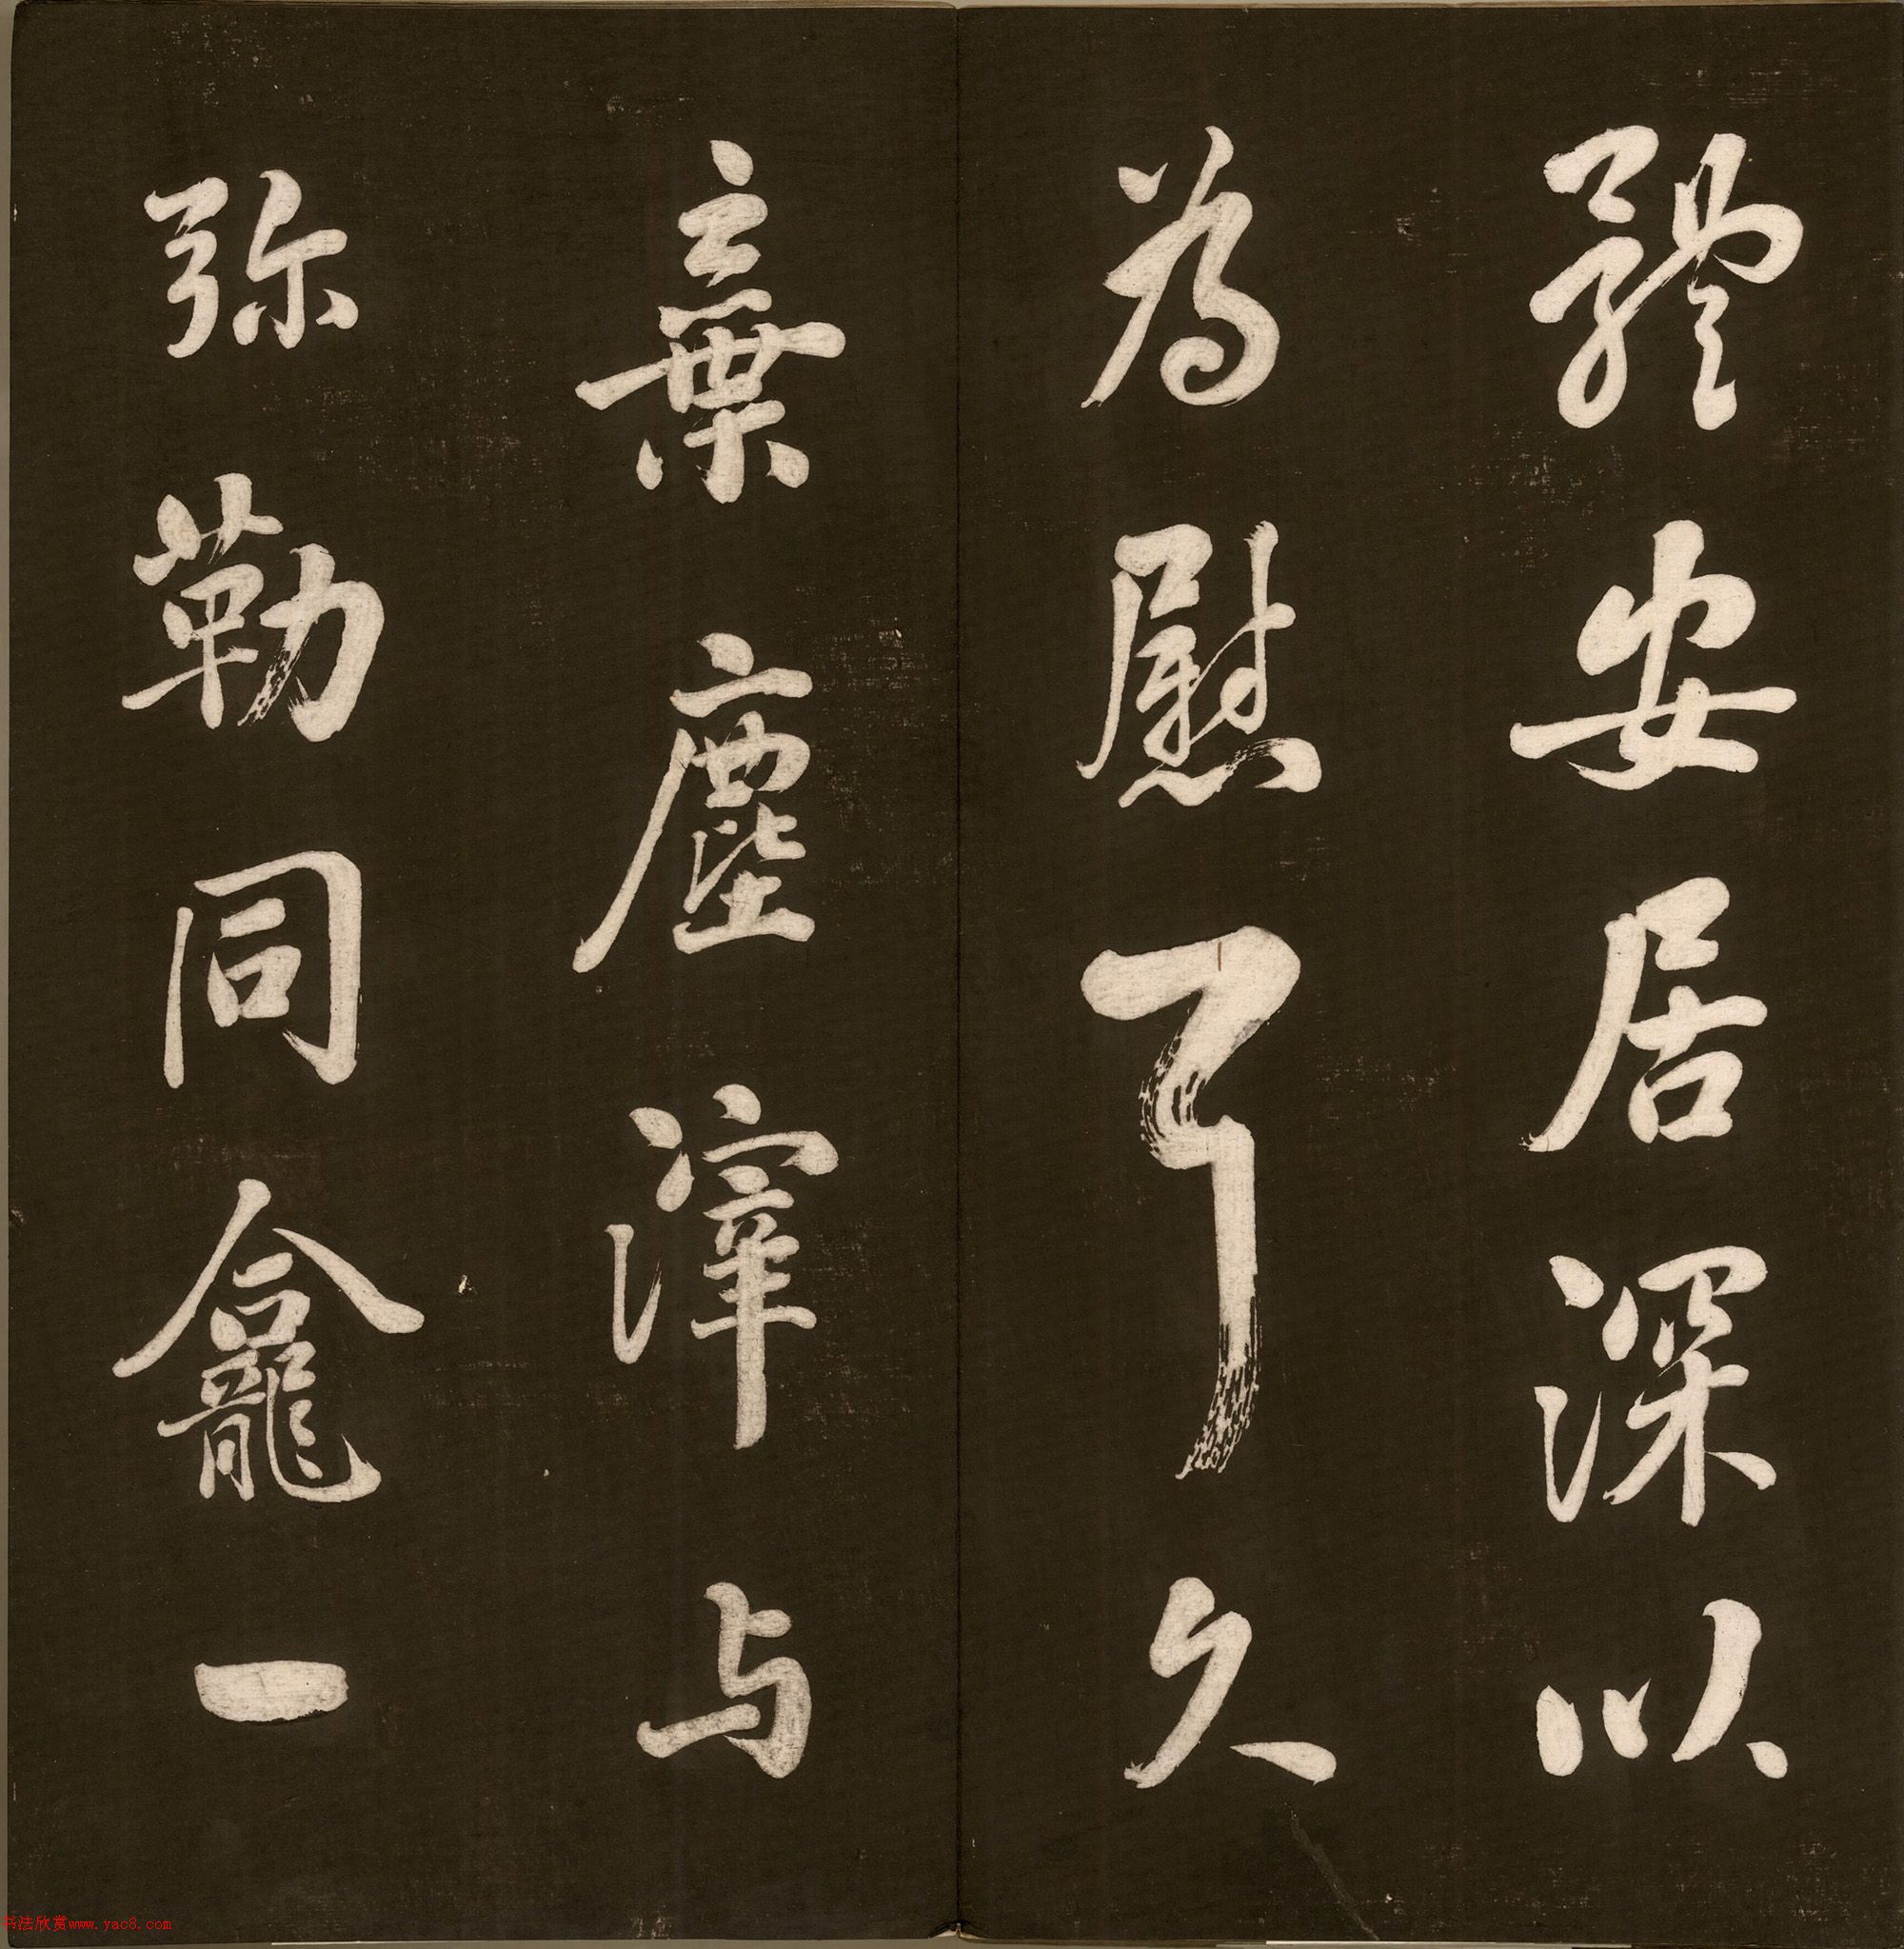 體安居深以
為慰了久
棄塵滓与
弥勒同龕一
书法欣赏www.yac8.com